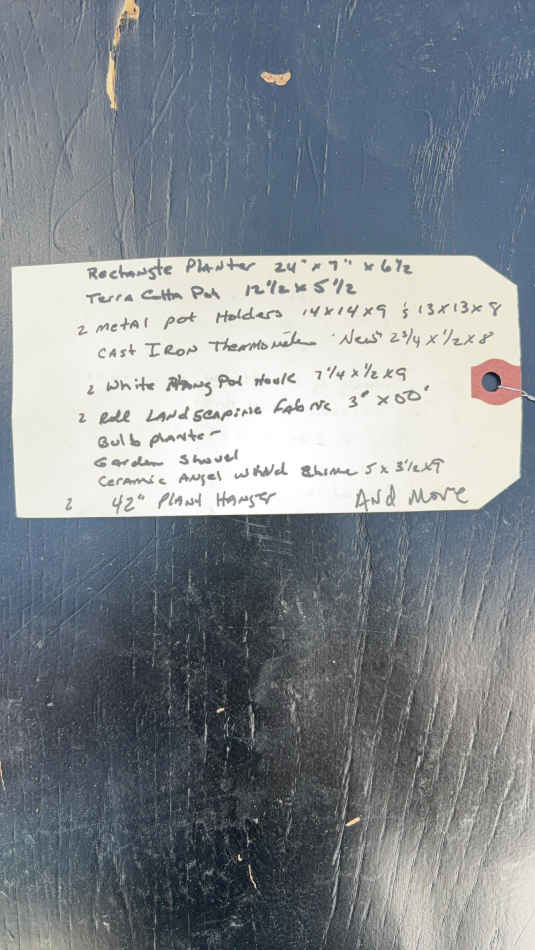 Rectangle Planter 24" x 7" x 6 1/2
Terra Cotta Pot 12 1/2 x 5 1/2
2 metal pot Holders 14x14x9 & 13x13x8
Cast Iron Thermometer "New" 2 3/4 x 1/2 x 8
2 White Hang Pot Hook 7 1/4 x 1/2 x 9
2 Roll Landscaping Fabric 3' x 50'
Bulb planter
Garden Shovel
Ceramic Angel Wind Chime 5 x 3 1/2 x 9
2 42" Plant Hanger
And More